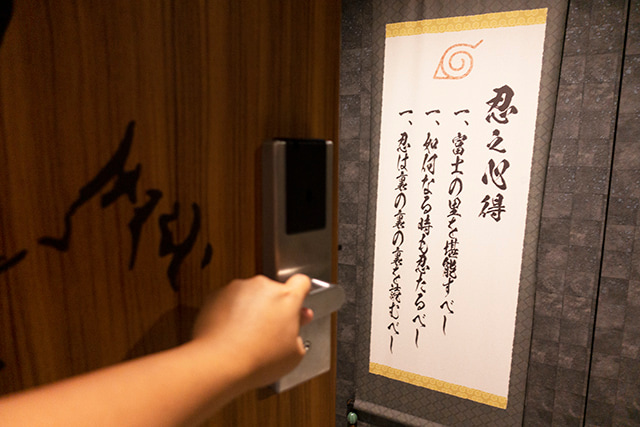 忍之心得
一、富士の里を堪能すべし
一、如何なる時も忍たるべし
一、忍は裏の裏の裏を読むべし